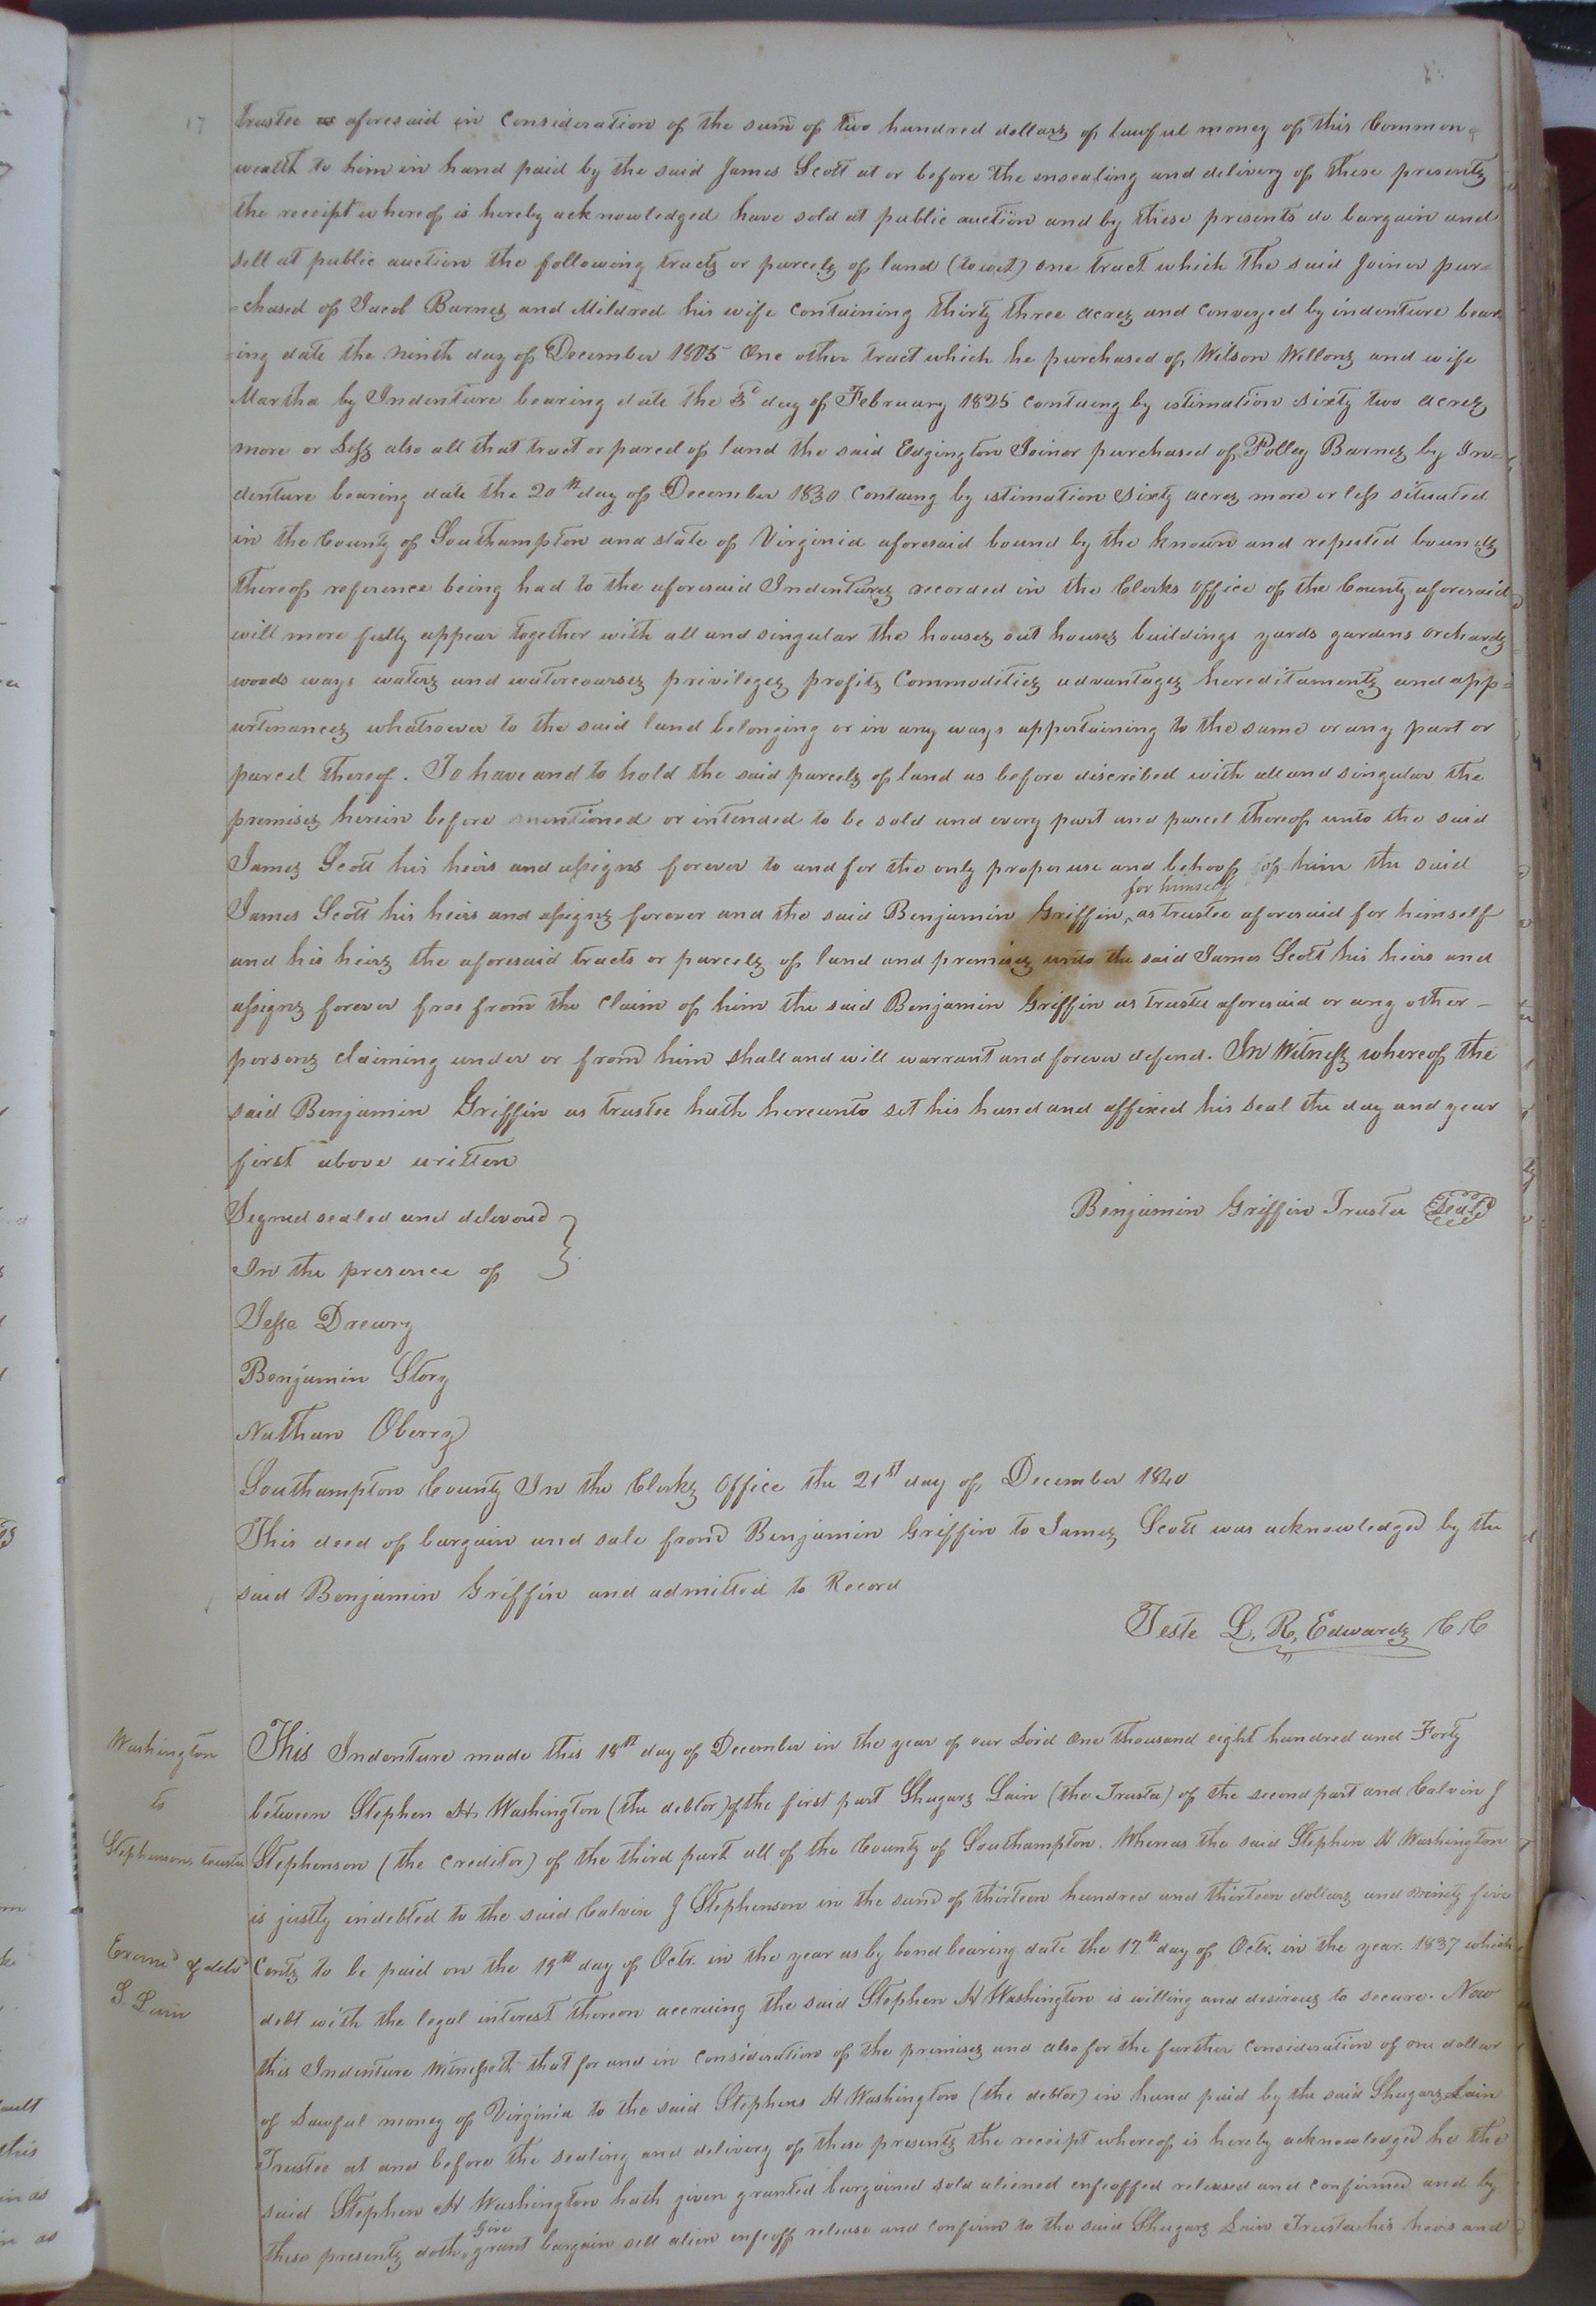 17
trustee as aforesaid in Consideration of the sum of two hundred dollars of lawful money of this Common=
wealth to him in hand paid by the said James Scott at or before the ensealing and delivery of these presents
the receipt whereof is hereby acknowledged have sold at public auction and by these presents do bargain and
sell at public auction the following tracts or parcels of land (towit) one tract which the said Joiner pur=
=chased of Jacob Barnes and Mildred his wife Containing thirty three acres and Conveyed by indenture bear=
=ing date the ninth day of December 1805 One other tract which he purchased of Wilson Wellons and wife
Martha by Indenture bearing date the day of February 1825 containg by estimation sixty two acres
more or Less also all that tract or parcel of land the said Edgington Joiner purchased of Polley Barnes by In=
denture bearing date the 20th day of December 1830 Containg by estimation Sixty acres more or less situated
in the County of Southampton and state of Virginia aforesaid bound by the known and reputed bounds
thereof reference being had to the aforesaid Indentures recorded in the Clerks Office of the County aforesaid
will more fully appear together with all and singular the houses out houses buildings yards gardens Orchards
woods ways waters and watercourses privileges profits Commodities advantages hereditaments and app=
urtenances whatsoever to the said land belonging or in any ways appertaining to the same or any part or
parcel thereof. To have and to hold the said parcels of land as before discribed with all and singular the
premises herein before mentioned or intended to be sold and every part and parcel thereof unto the said
James Scott his heirs and assigns forever to and for the only proper use and behoof of him the said
for himself
James Scott his heirs and assigns forever and the said Benjamin Griffin as trustee aforesaid for himself
and his heirs the aforesaid tracts or parcels of land and premises unto the said James Scott his heirs and
assigns forever free from the Claim of him the said Benjamin Griffin as trustee aforesaid or any other -
persons claiming under or from him shall and will warrant and forever defend. In Witness whereof the
said Benjamin Griffin as trustee hath hereunto set his hand and affixed his seal the day and year
first above written
Signed sealed and deliverd
In the presence of
Benjamin Griffin Trustee Seal
Jesse Drewry
Benjamin Story
Nathan Oberry
Southampton County In the Clerks Office the 21st day of December 1840
This deed of bargain and sale from Benjamin Griffin to James Scott was acknowledged by the
said Benjamin Griffin and admitted to Record
Teste L. R. Edwards CC
Washington
to
Stephensons trustee
Examd & deld
S Lain
This Indenture made this 18th day of December in the year of our Lord One thousand eight hundred and Forty
between Stephen H Washington (the debtor) of the first part Shugars Lain (the Trustee) of the second part and Calvin J
Stephenson (the Creditor) of the third part all of the County of Southampton. Whereas the said Stephen H Washington
is justly indebted to the said Calvin J Stephenson in the sum of thirteen hundred and thirteen dollars and ninety five
Cents to be paid on the 19th day of Octr. in the year as by bond bearing date the 17th day of Octr. in the year 1837 which
debt with the legal interest thereon accruing the said Stephen H Washington is willing and desirous to secure. Now
this Indenture Witnesseth that for and in Consideration of the premises and also for the further Consideration of one dollar
of Lawful money of Virginia to the said Stephens H Washington (the debtor) in hand paid by the said Shugars Lain
Trustee at and before the sealing and delivery of these presents the receipt whereof is hereby acknowledged he the
said Stephen H Washington hath given granted bargained sold aliened enfeoffed released and confirmed and by
Give
these presents doth grant bargain sell alien enfeoff release and confirm to the said Shugars Lain Trustee his heirs and